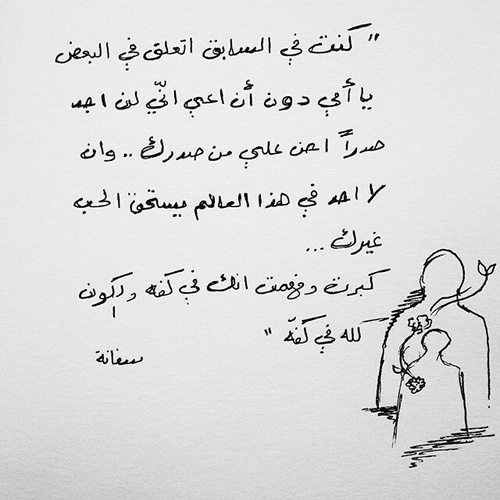 " كنت في السابق اتعلق في البعض
يا أمي دون أن اعي انّي لن اجد
صدراً احن علي من صدرك .. وان
لا احد في هذا العالم يستحق الحب
غيرك ...
كبرت وفهمت انك في كفه والكون
كله في كفّه "
سفانة